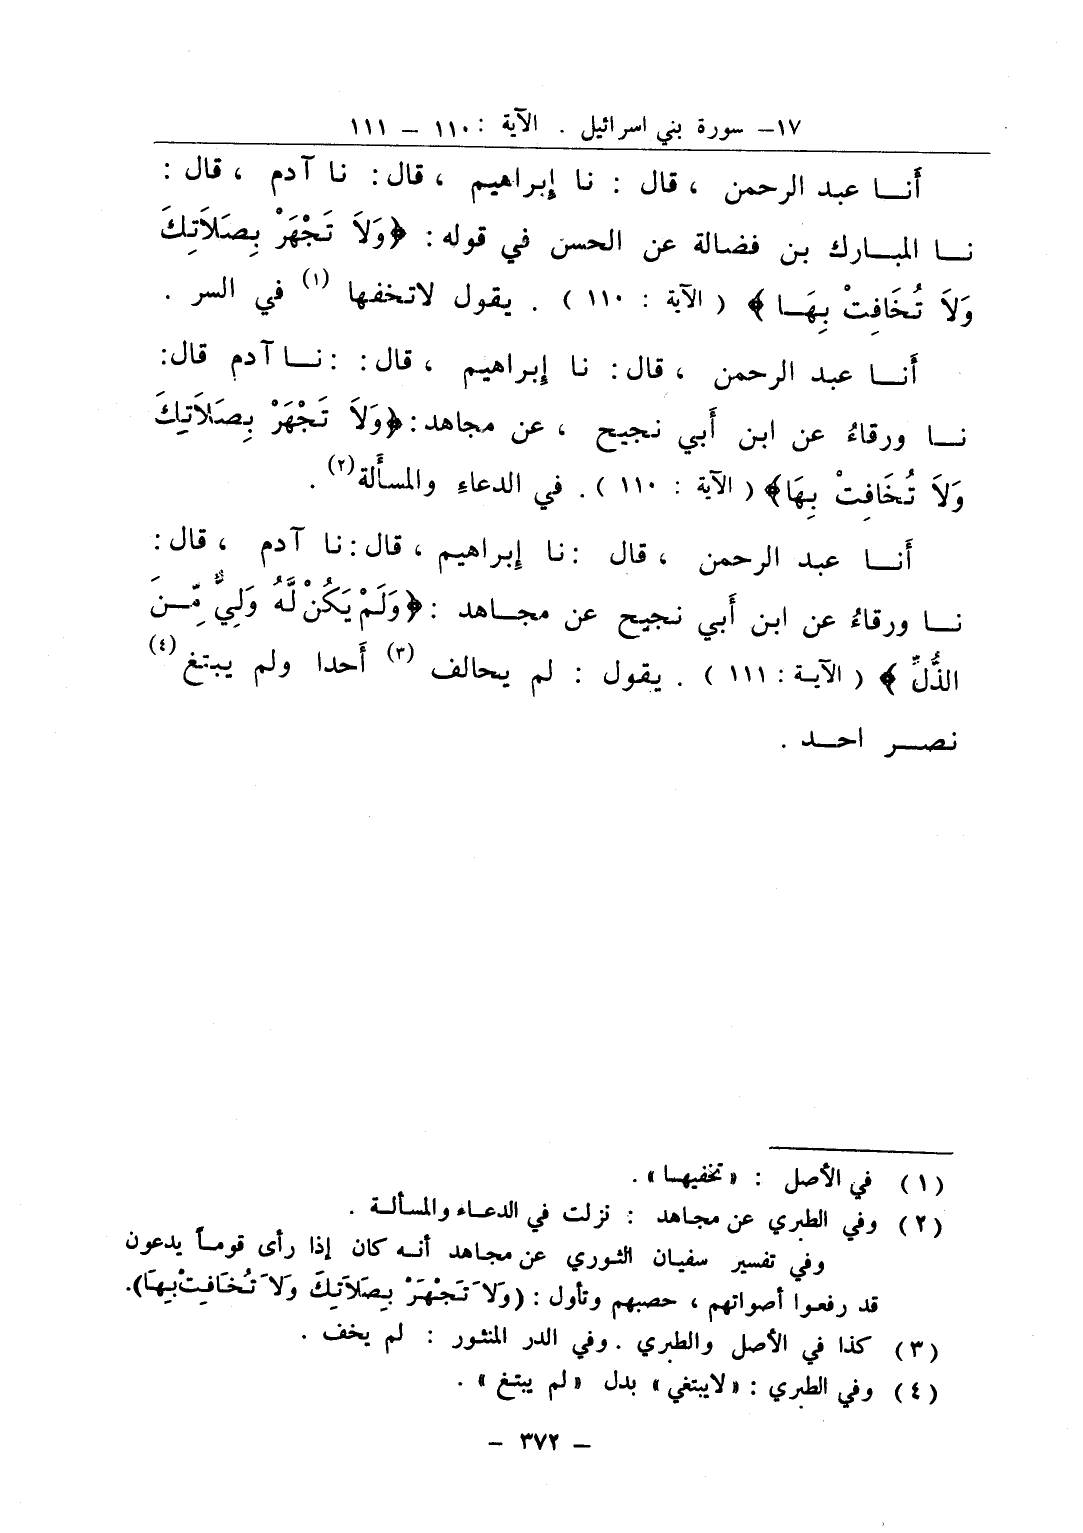 ١٧- سورة بني اسرائيل . الآية : ١١٠ - ١١١
أَنـا عبد الرحمن ، قال : نا إبراهيم ، قال : نا آدم ، قال :
نـا المبـارك بن فضالة عن الحسن في قوله : ﴿وَلاَ تَجْهَرْ بِصَلاَتِكَ
وَلاَ تُخَافِتْ بِهَـا ﴾ ( الآية : ١١٠ ) . يقول لاتخفها (١) في السر .
أَنـا عبد الرحمن ، قال : نا إبراهيم ، قال : : نـا آدم قال :
نـا ورقاءُ عن ابن أَبي نجيح ، عن مجاهد : ﴿وَلاَ تَجْهَرْ بِصَلاَتِكَ
وَلاَ تُخَافِتْ بِهَا﴾ ( الآية : ١١٠ ) . في الدعاءِ والمسأَلة (٢) .
أَنـا عبد الرحمن ، قال : نا إبراهيم ، قال : نا آدم ، قال :
نـا ورقاءُ عن ابن أَبي نجيح عن مجـاهد : ﴿وَلَمْ يَكُنْ لَّهُ وَلِيٌّ مِّـنَ
الذُّلِّ ﴾ ( الآيـة : ١١١ ) . يقول : لم يحالف (٣) أَحدا ولم يبتغ (٤)
نصـر احـد .
(١) في الأصل : «تخفيهـا» .
(٢) وفي الطبري عن مجاهد : نزلت في الدعـاء والمسألـة .
وفي تفسير سفيان الثوري عن مجاهد أنـه كان إذا رأى قومـاً يدعون
قد رفعوا أصواتهم ، حصبهم وتأول : (وَلاَ تَجْهَرْ بِصَلاَتِكَ وَلاَ تُخَافِتْ بِهَا).
(٣) كذا في الأصل والطبري . وفي الدر المنثور : لم يخف .
(٤) وفي الطبري : «لايبتغي» بدل «لم يبتغ» .
- ٣٧٢ -